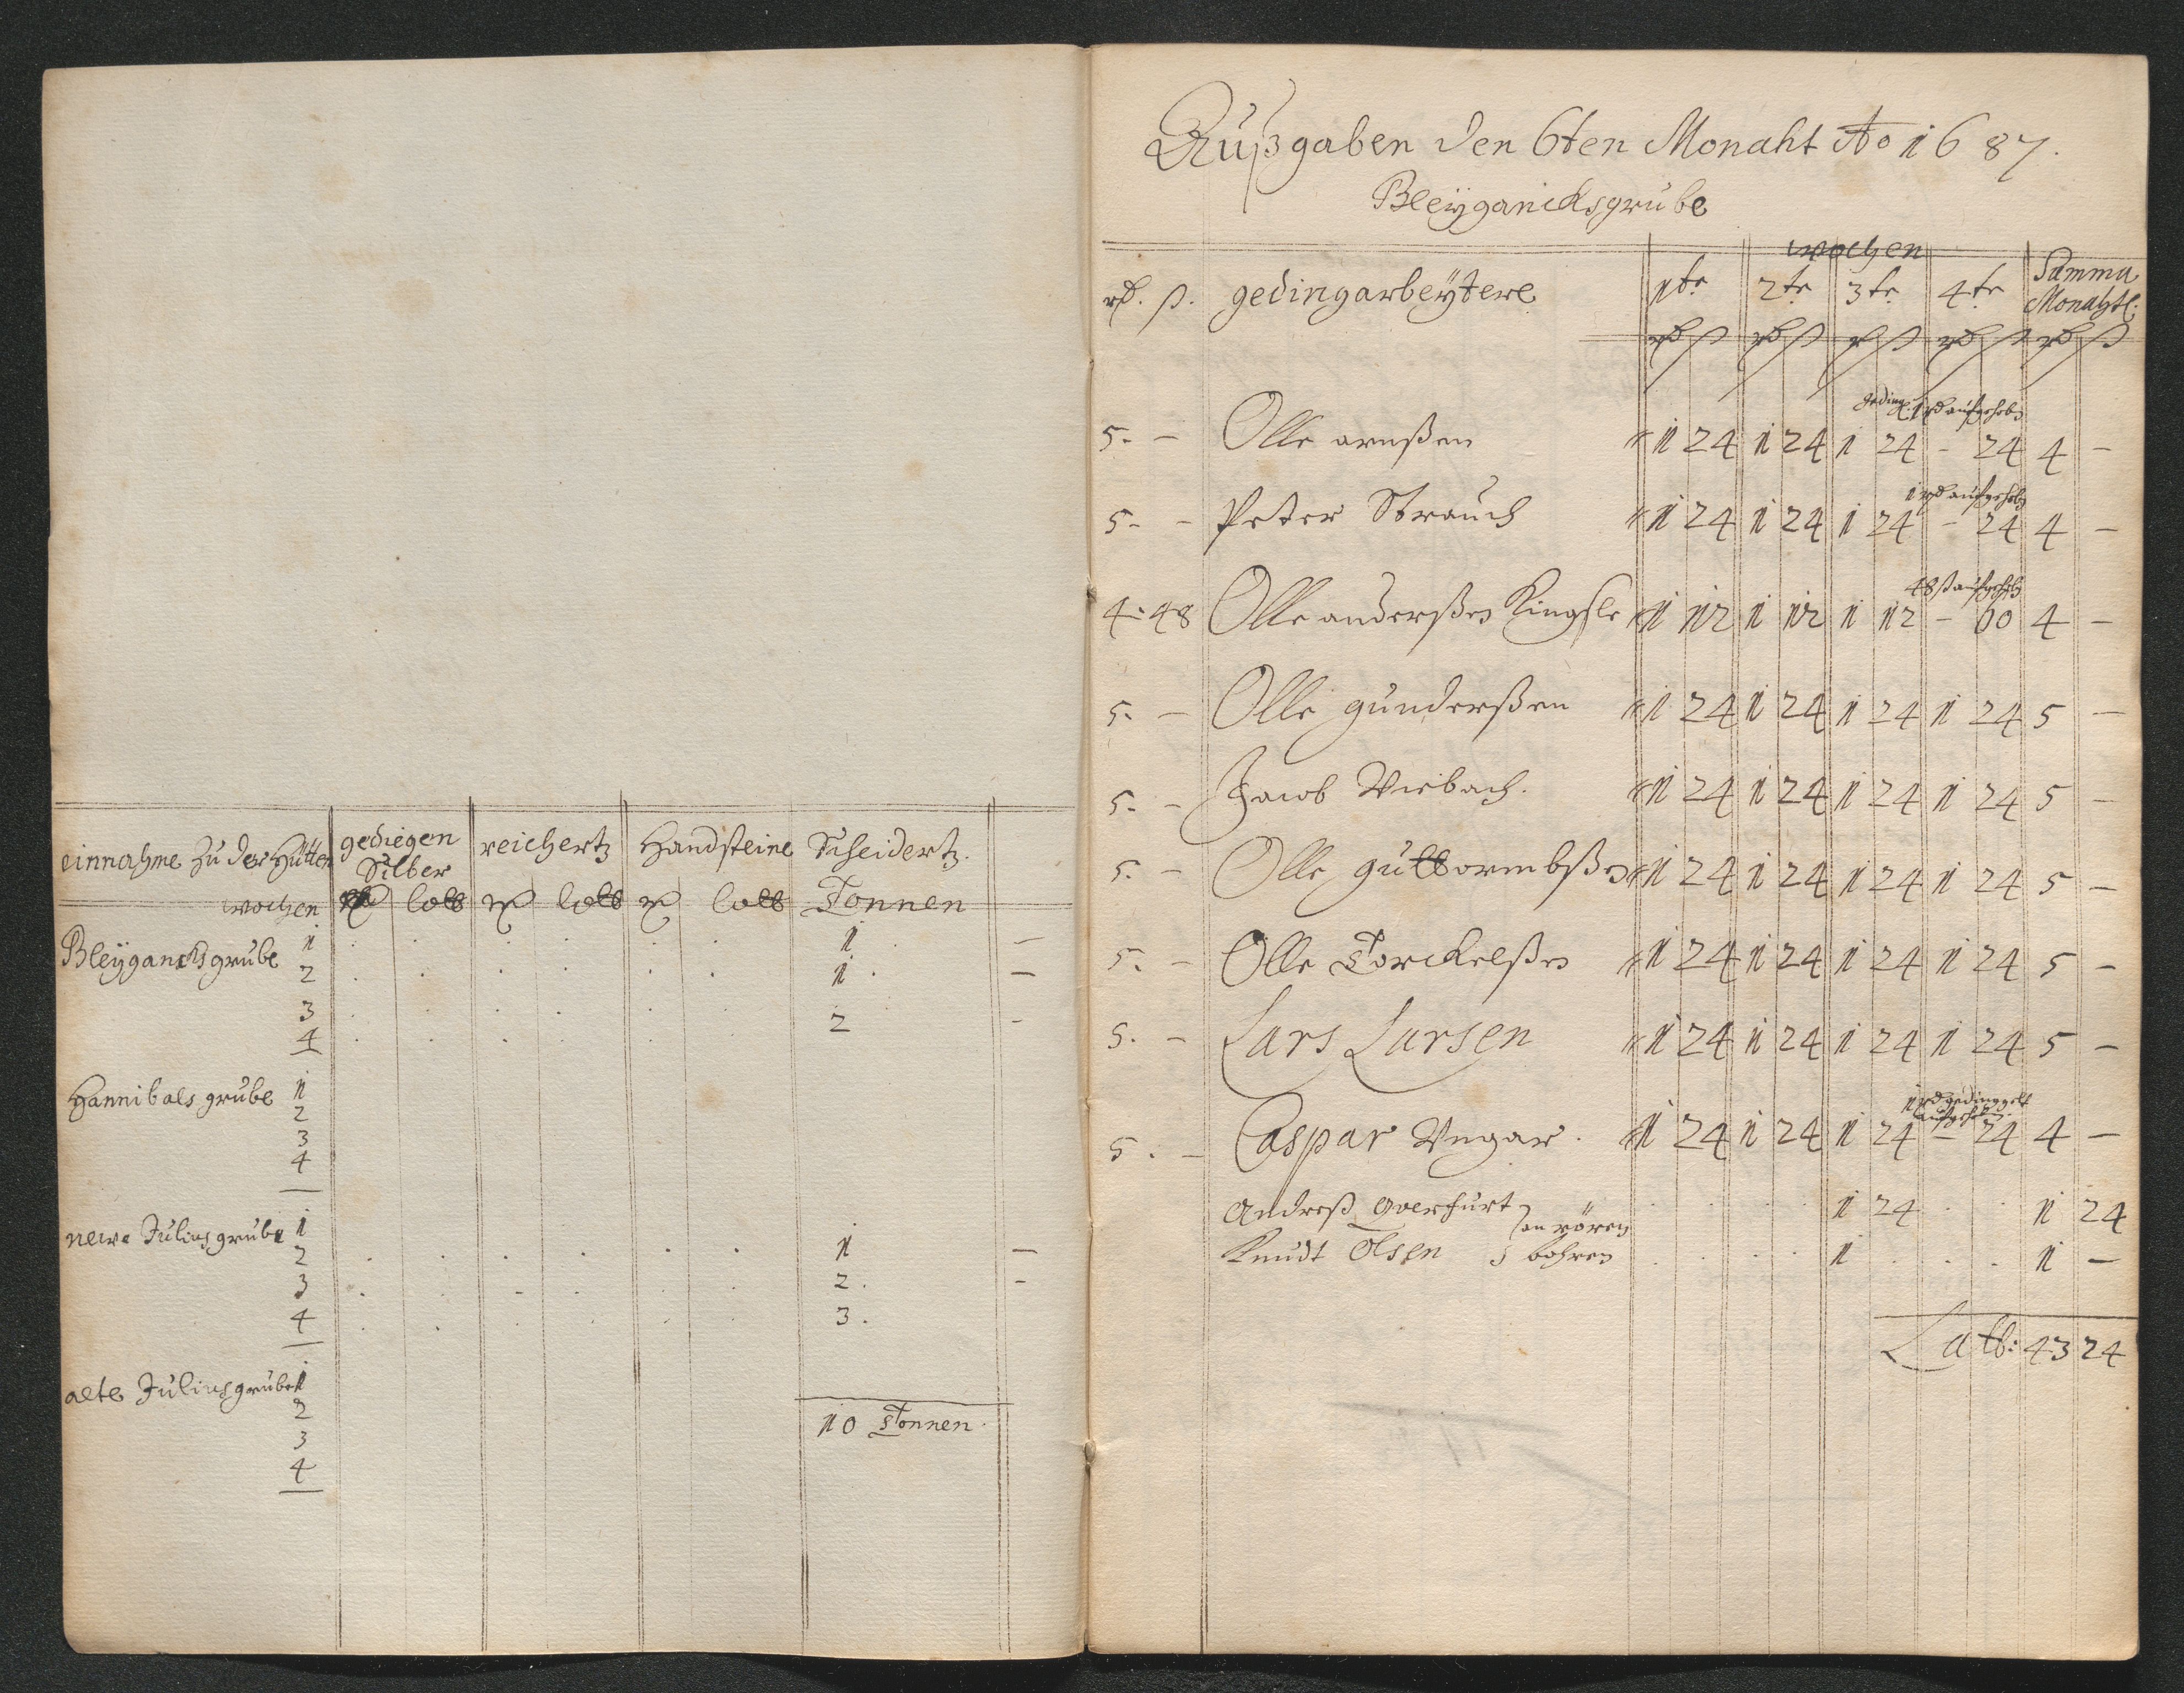 einnahme zu der Hütten gediegen Silber reichertz Handsteine Scheidertz.
wochen lott lott lott Tonnen
Bleygancksgrube 1 . . . . . . 1 —
2 . . . . . . 1 . —
3 . . . . . . 2 -
4 . . . . .
Hannibals grube 1
2
3
4
newe Juliusgrube 1
2 . . . . . . 1 —
3 . . . . . . 2 . -
4 . . . . . . 3 .
alte Juliusgrube 1
2
3
4
10 Tonnen.
Außgaben den 6ten Monaht Ao 1687.
Bleygancksgrube
wochen
rd. ß. gedingarbeytere 1te 2te 3te 4te Summa Monahtl:
rd ß rd ß rd ß rd ß rd ß
geding. 1 rd aufgehoben
5. — Olle arnßen 1 24 1 24 1 24 - 24 4 —
1 rd aufgehoben
5. - Peter Strauch 1 24 1 24 1 24 - 24 4 —
48 ß aufgehoben
4:48 Olle anderßen Kingsle 1 12 1 12 1 12 - 60 4 —
5. — Olle gunderßen 1 24 1 24 1 24 1 24 5 —
5. - Jacob Viebach. 1 24 1 24 1 24 1 24 5 —
5. - Olle guttormbßen 1 24 1 24 1 24 1 24 5 —
5. - Olle Torckelßen 1 24 1 24 1 24 1 24 5 —
5. - Lars Larsen 1 24 1 24 1 24 1 24 5 —
1 rd gedinggelt
aufgehoben.
5. - Caspar Vngar. 1 24 1 24 1 24 - 24 4 —
Andreß Qverfurt } an rören . . . . 1 24 . . 1 24
Knudt Olsen } bohren . . . . 1 . . . 1 —
Latt: 43 24